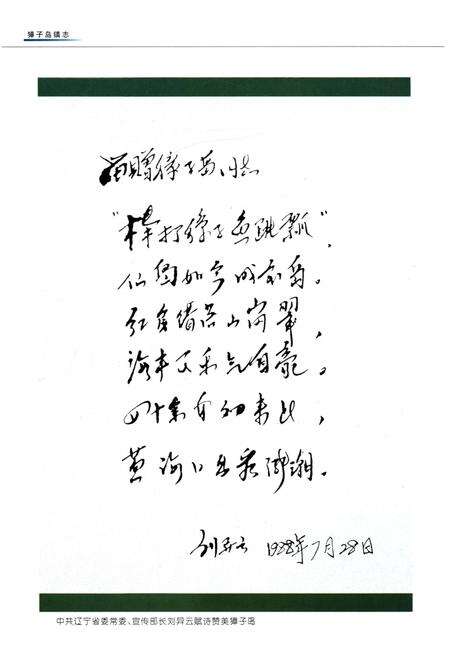 獐子岛镇志
留赠獐子岛同志
"棒打獐子鱼跳瓢",
仙如今成宝岛。
红瓦错落山岗翠,
海丰人乐气自豪。
四十余年初来此,
黄海日出潮。
刘异云 1988年7月28日
中共辽宁省委常委、宣传部长刘异云赋诗赞美獐子岛